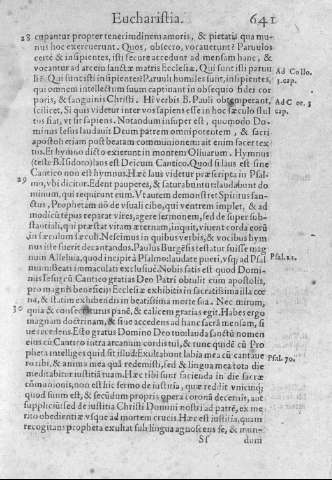 Eucharistia. 641
28 cupantur propter teneritudinem amoris, & pietatis qua mu-
nus hoc exercuerunt. Quos, obsecro, vocauerunt? Paruulos
certè & insipientes, isti securè accedant ad mensam hanc, &
vocantur ad arcem sanctæ matris Ecclesiæ. Qui sunt isti paruu
li? Qui sunt isti insipientes? Paruuli humiles sunt, insipientes,
Ad Collo. 3. cap.
qui omnem intellectum suum captiuant in obsequio fidei cor
poris, & sanguinis Christi. Hi verbis B. Pauli obtemperant,
Ad Cor. 3 cap.
scilicet, Si quis videtur inter vos sapiens esse in hoc sæculo stul
tus fiat, vt sit sapiens. Notandum insuper est, quomodo Do-
minus Iesus laudauit Deum patrem omnipotentem, & sacri
apostoli etiam post beatam communionem ait enim facer tex-
tus. Et hymno dicto exierunt in montem Oliuarum. Hymnus
(teste B. Isidoro) laus est Dei cum Cantico. Quod si laus est sine
Cantico non est hymnus. Hæc laus videtur præscripta in Psal-
29 mo, vbi dicitur. Edent pauperes, & saturabuntur laudabunt do
minum, qui requirunt eum. Vt autem demonstret Spiritus san-
ctus, Prophetam nō de vsuali cibo, qui ventrem implet, & ad
modicū tēpus reparat vires, agere sermonem, sed de super sub-
stantiali, qui præstat vitam æternam, inquit, viuent corda eorū
in sæculum sæculi. Nescimus in quibus verbis, & vocibus hym
Psal. 21.
nus iste fuerit decantandus. Paulus Burgēsis testatur fuisse mag
num Alleluia, quod incipit à Psalmo laudate pueri, vsq; ad Psal
mum Beati immaculati exclusiuè. Nobis satis est quod Domi-
nus Iesus cū Cantico gratias Deo Patri obtulit cum apostolis,
pro magni beneficio Ecclesiæ exhibito in sacratissima illa cœ
na, & statim exhibendo in beatissima morte sua. Nec mirum,
30 quia & consecraturus panē, & calicem gratias egit. Habes ergo
magnam doctrinam, & siue accedens ad hanc sacrā mensam, si
ue recedens. Esto gratus Domino Deo tuo lauda sanctū nomen
eius cū Cantico intra arcanum cordis tui, & tunc quidē cū Pro
pheta intelliges quid sit illud: Exultabunt labia mea cū cantaue
Psal. 70.
ro tibi, & anima mea quā redemisti, sed & lingua mea tota die
meditabitur iustitiā tuam. Hæc tibi sunt facienda in die sacræ
cōmunionis, non est hic sermo de iustitia, quæ reddit vnicuiq;
quod suum est, & secūdum propris opera coronā decernit, aut
supplicia sed de iustitia Christi Domini nostri ad patrē, ex me
rito obedientiæ vsque ad mortem crucis. Hæc est iustitia, quam
recogitans propheta exultat sub lingua agnoscens se, & mun-
Sſ dum